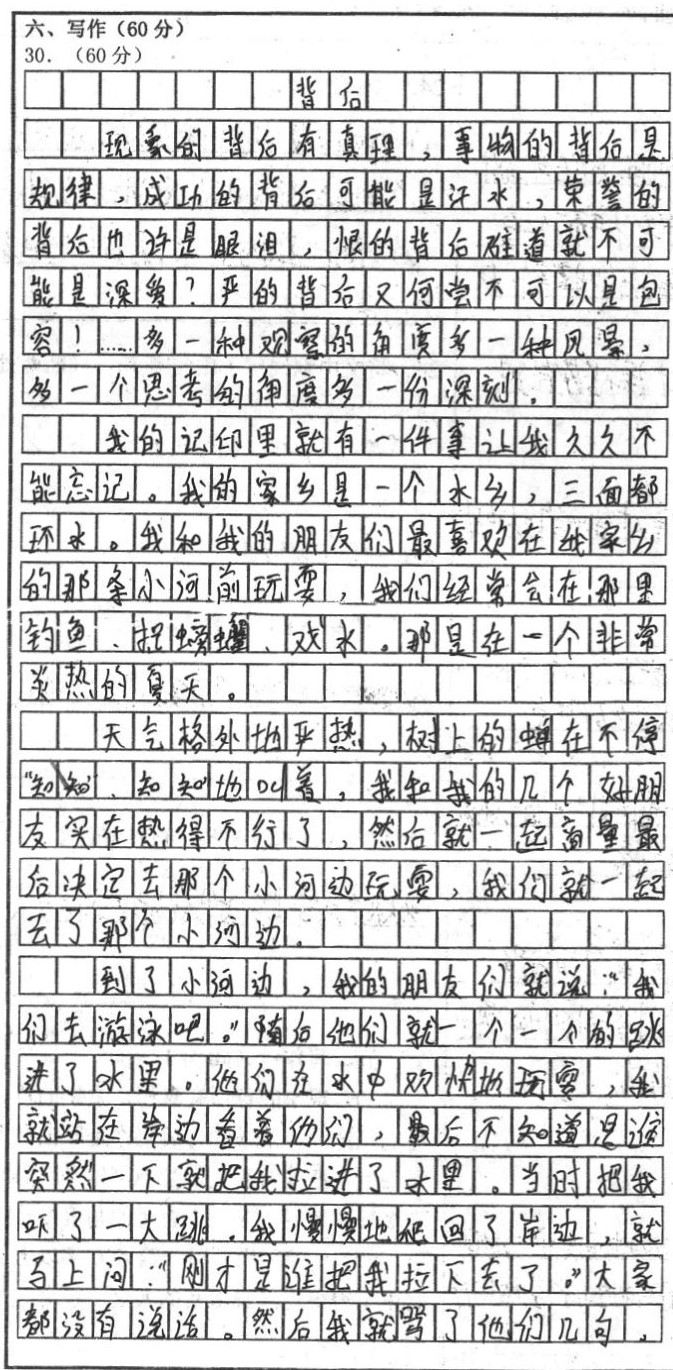 六、写作（60分）
30．（60分）
背后
现象的背后有真理，事物的背后是
规律，成功的背后可能是汗水，荣誉的
背后也许是眼泪，恨的背后难道就不可
能是深爱？严的背后又何尝不可以是包
容！……多一种观察的角度多一种风景，
多一个思考的角度多一份深刻。
我的记印里就有一件事让我久久不
能忘记。我的家乡是一个水乡，三面都
环水。我和我的朋友们最喜欢在我家乡
的那条小河前玩耍，我们经常会在那里
钓鱼、捉螃蟹、戏水。那是在一个非常
炎热的夏天。
天气格外地严热，树上的蝉在不停
“知知”、知知”地叫着，我和我的几个好朋
友实在热得不行了，然后就一起商量最
后决定去那个小河边玩耍，我们就一起
去了那个小河边。
到了小河边，我的朋友们就说：“我
们去游泳吧。”随后他们就一个一个的跳
进了水里。他们在水中欢快地玩耍，我
就站在岸边看着他们，最后不知道是谁
突然一下就把我拉进了水里。当时把我
吓了一大跳。我慢慢地爬回了岸边，就
马上问：“刚才是谁把我拉下去了。”大家
都没有说话。然后我就骂了他们几句，